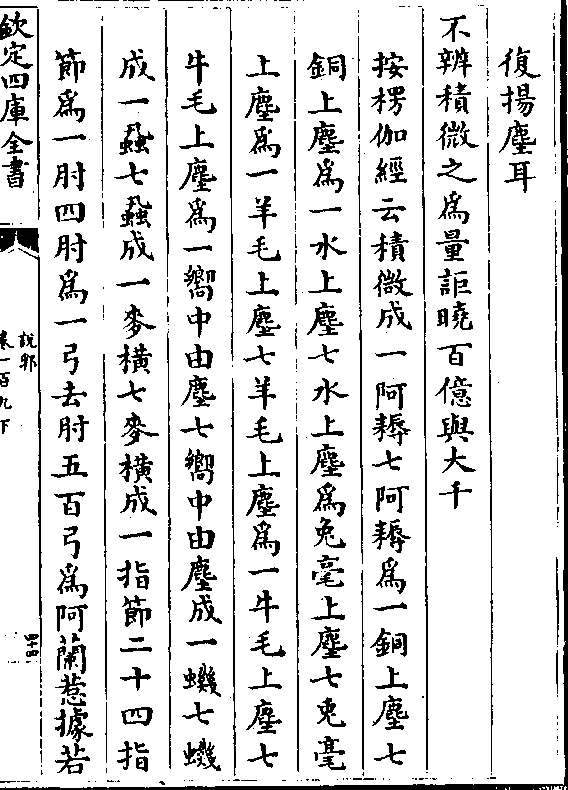 復揚塵耳
不辨積微之為量詎曉百億與大千
按楞伽經云積微成一阿耨七阿耨為一銅上塵七
銅上塵為一水上塵七水上塵為兔毫上塵七兔毫
上塵為一羊毛上塵七羊毛上塵為一牛毛上塵七
牛毛上塵為一嚮中由塵七嚮中由塵成一蟣七蟣
成一蝨七蝨成一麥橫七麥橫成一指節二十四指
節為一肘四肘為一弓去肘五百弓為阿蘭惹據若
欽定四庫全書
說郛
卷一百九下